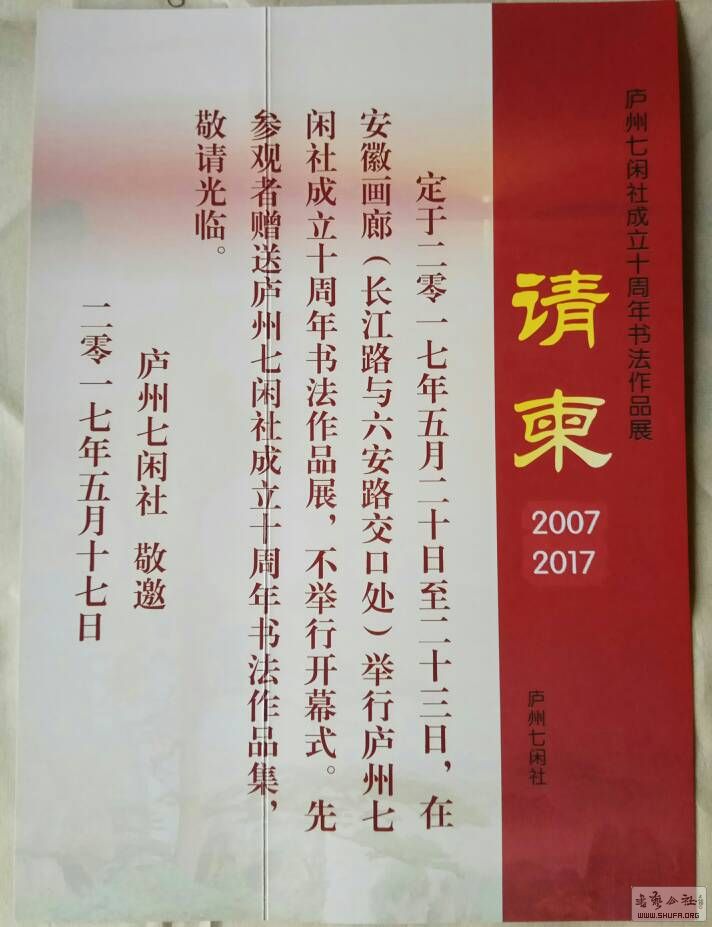 庐州七闲社成立十周年书法作品展
请柬
2007
2017
庐州七闲社
定于二零一七年五月二十日至二十三日，在
安徽画廊（长江路与六安路交口处）举行庐州七
闲社成立十周年书法作品展，不举行开幕式。先
参观者赠送庐州七闲社成立十周年书法作品集，
敬请光临。
庐州七闲社 敬邀
二零一七年五月十七日
书艺公社
WWW.SHUFA.ORG